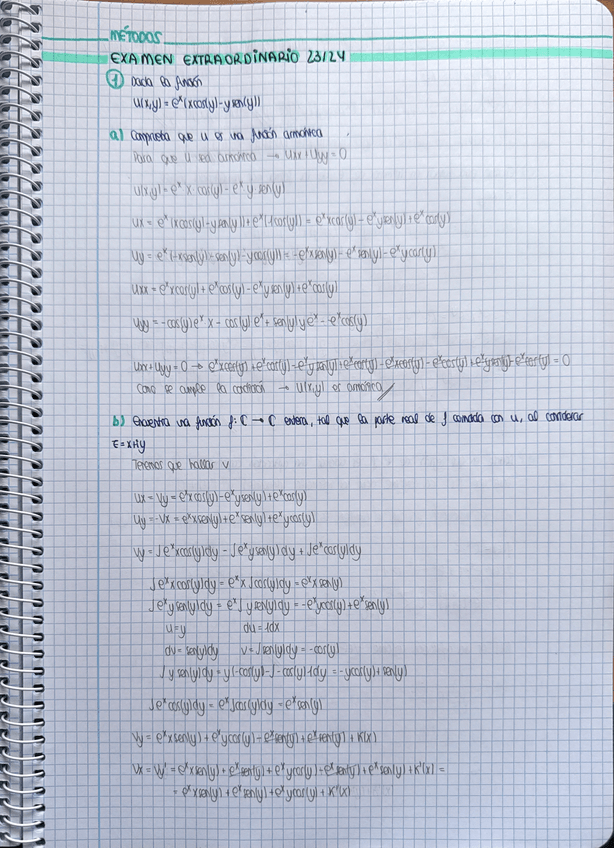 MÉTODOS
EXAMEN EXTRAORDINARIO 23/24
① Dada la función
u(x,y)=eˣ(xcos(y)-ysen(y))
a) Comprueba que u es una función armónica
Para que u sea armónica → Uxx+Uyy=0
u(x,y)=eˣ x cos(y)-eˣ y sen(y)
Ux = eˣ(xcos(y)-ysen(y))+eˣ(1cos(y)) = eˣxcos(y)-eˣysen(y)+eˣcos(y)
Uy = eˣ(-xsen(y)-sen(y)-ycos(y)) = -eˣxsen(y)-eˣsen(y)-eˣycos(y)
Uxx = eˣxcos(y)+eˣcos(y)-eˣysen(y)+eˣcos(y)
Uyy = -cos(y)eˣ x - cos(y)eˣ + sen(y)yeˣ - eˣcos(y)
Uxx+Uyy=0 → eˣxcos(y)+eˣcos(y)-eˣysen(y)+eˣcos(y)-eˣxcos(y)-eˣcos(y)+eˣysen(y)-eˣcos(y)=0
Como se cumple la condición → u(x,y) es armónica
b) Encuentra una función f: C → C entera, tal que la parte real de f coincida con u, al considerar
z=x+iy
Tenemos que hallar v
Ux = Vy = eˣxcos(y)-eˣysen(y)+eˣcos(y)
Uy = -Vx = eˣxsen(y)+eˣsen(y)+eˣycos(y)
Vy = ∫eˣxcos(y)dy - ∫eˣysen(y)dy + ∫eˣcos(y)dy
∫eˣxcos(y)dy = eˣx∫cos(y)dy = eˣxsen(y)
∫eˣysen(y)dy = eˣ∫ysen(y)dy = -eˣycos(y)+eˣsen(y)
u=y du=1dx
dv=sen(y)dy v=∫sen(y)dy=-cos(y)
∫ysen(y)dy = y(-cos(y))-∫-cos(y)·1dy = -ycos(y)+sen(y)
∫eˣcos(y)dy = eˣ∫cos(y)dy = eˣsen(y)
Vy = eˣxsen(y)+eˣycos(y)-eˣsen(y)+eˣsen(y)+K(x)
Vx = Vy' = eˣxsen(y)+eˣsen(y)+eˣycos(y)-eˣsen(y)+eˣsen(y)+K'(x) =
= eˣxsen(y)+eˣsen(y)+eˣycos(y)+K'(x)